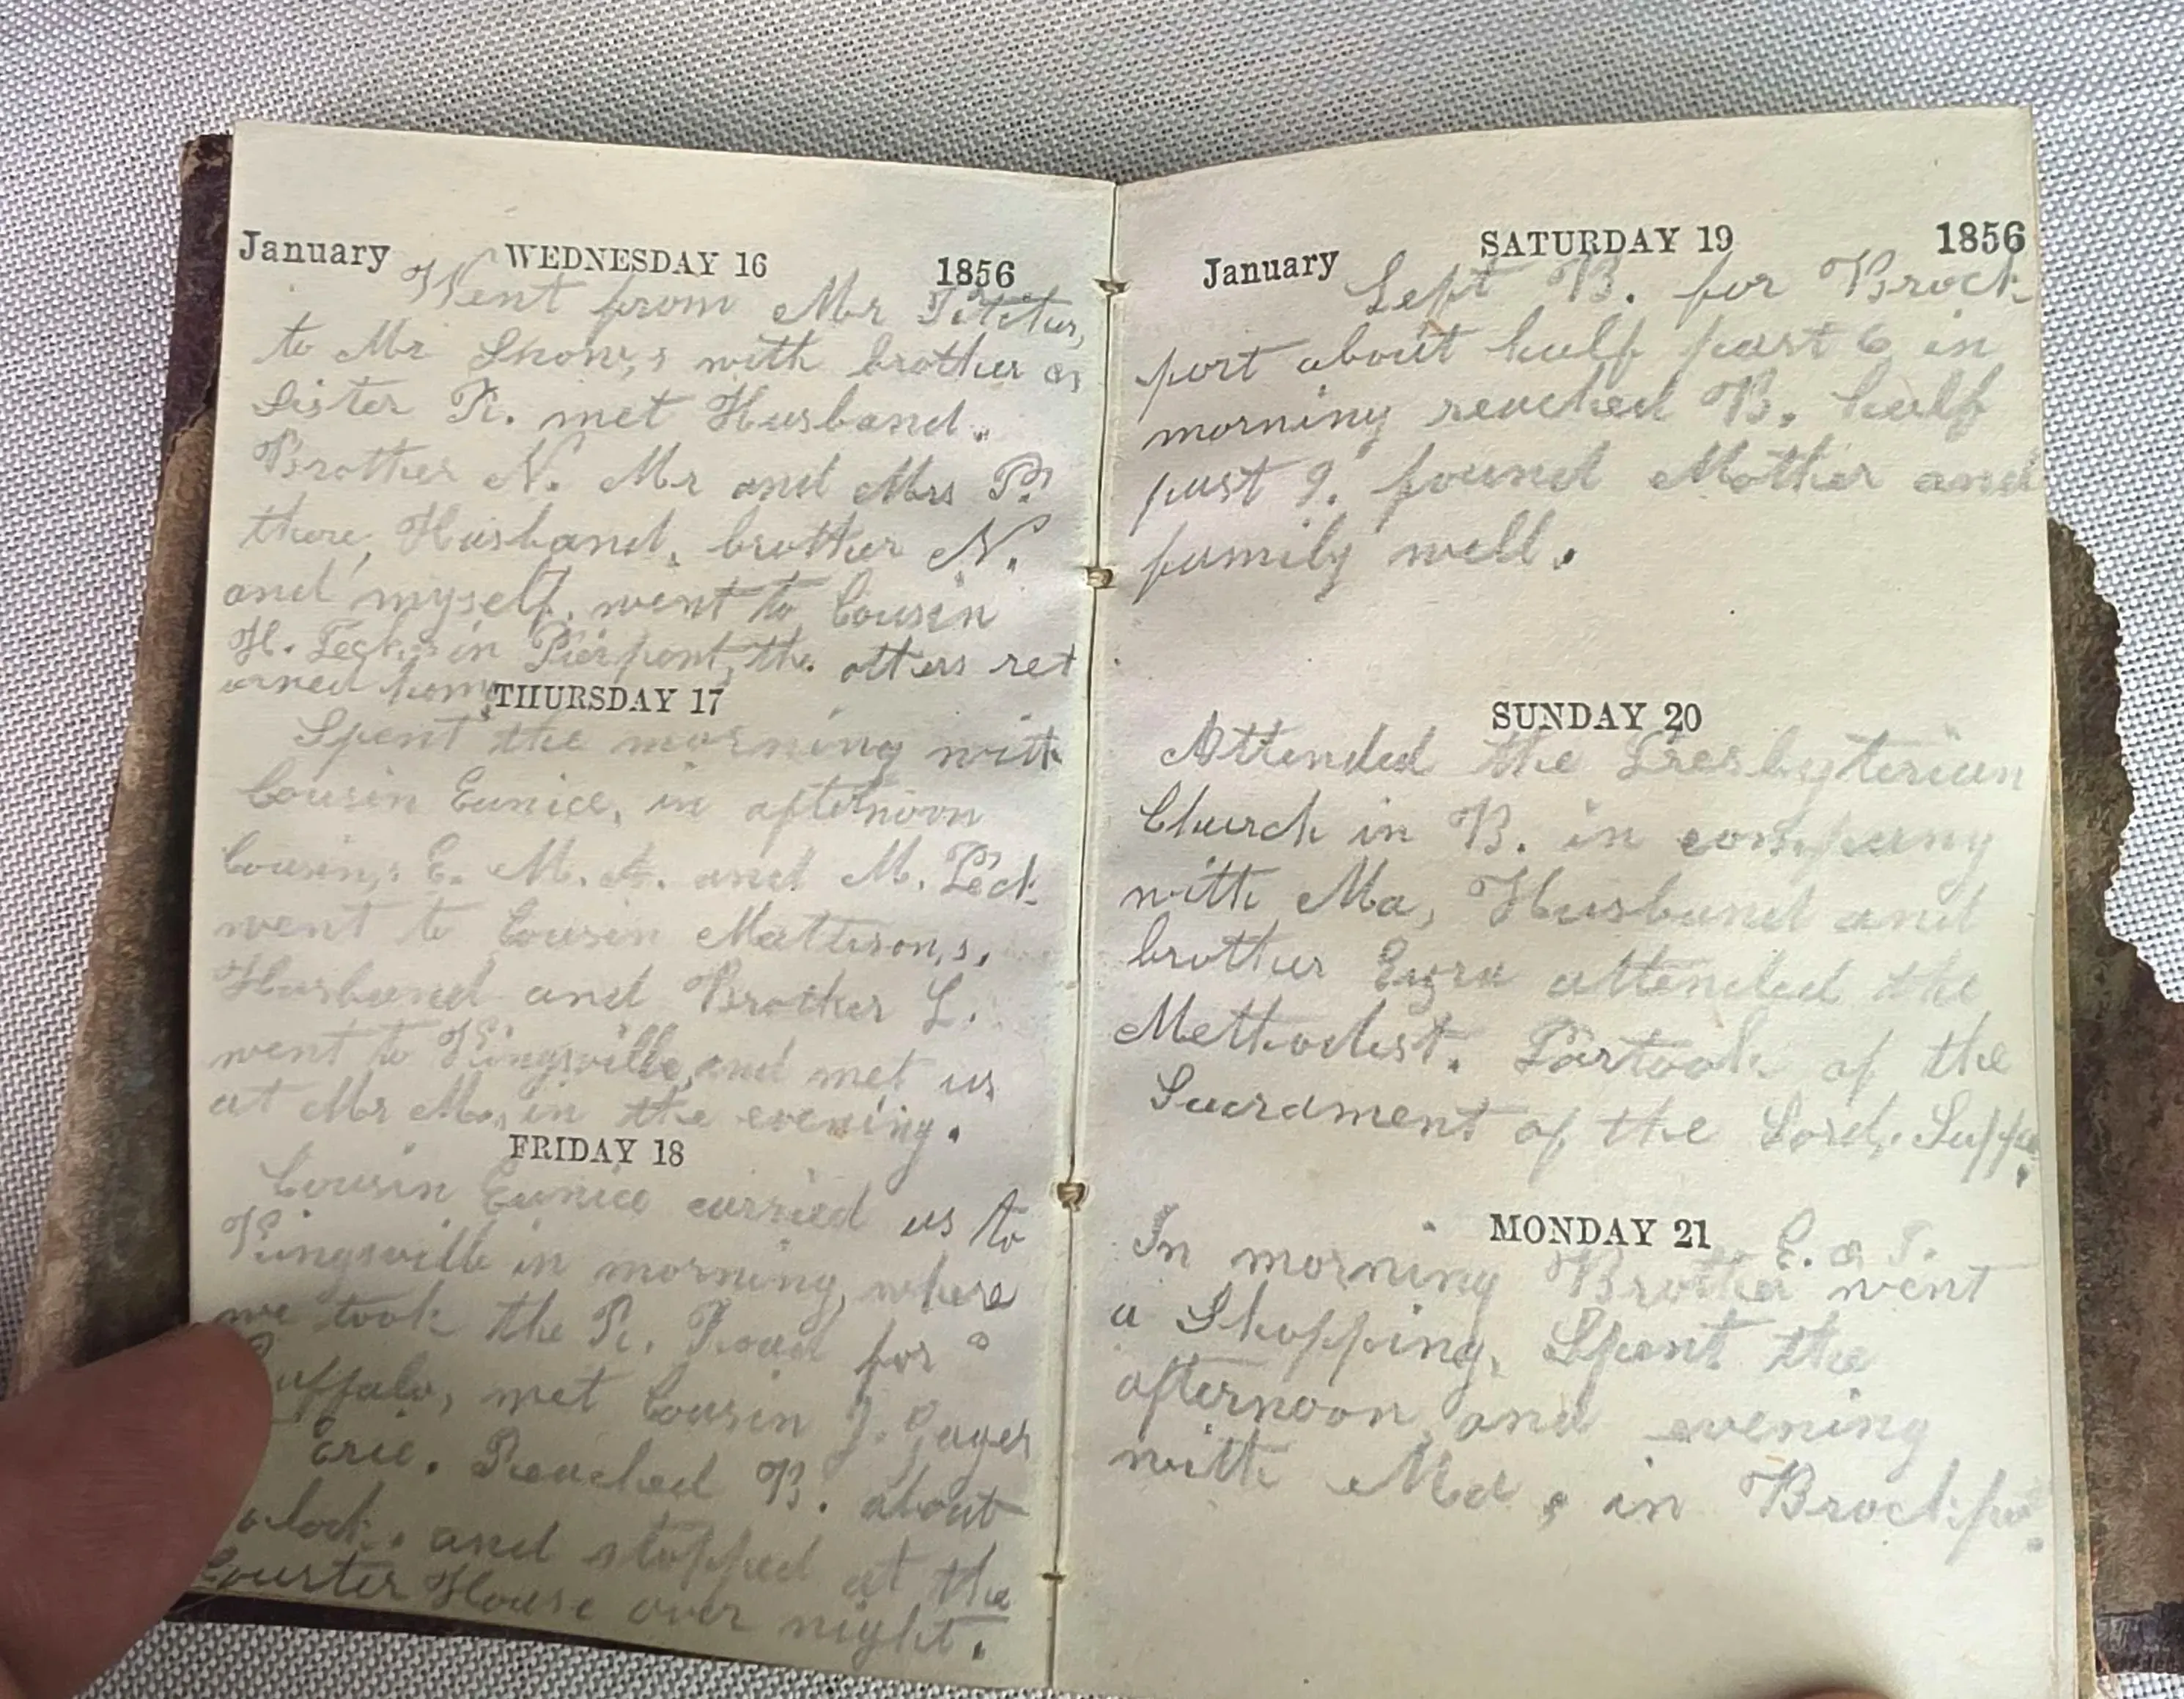 January WEDNESDAY 16 1856
Went from Mr
to Mr Snow,s with brother &
Sister R. met Husband.
Brother N. Mr and Mrs P.
there, Husband, brother N.
and myself, went to Cousin
H. Peck,s in Pierpont, the others ret
urned home
THURSDAY 17
Spent the morning with
Cousin Eunice, in afternoon
Cousin,s E. M. A. and M. Peck
went to Cousin Mattison,s.
Husband and Brother L.
went to Kingsville, and met us
at Mr M., in the evening.
FRIDAY 18
Cousin Eunice carried us to
Kingsville in morning, where
we took the R. Road for
uffalo, met Cousin J.
Erie. Reached B. about
clock, and stopped at the
House over night.
January SATURDAY 19 1856
Left B. for Brock
port about half past 6 in
morning reached B. half
past 9. found Mother and
family well.
SUNDAY 20
Attended the Presbyterian
Church in B. in company
with Ma, Husband and
brother Ezra attended the
Methodist. Partook of the
Sacrament of the Lord,s Suppe
MONDAY 21
E. & T.
In morning Brother went
a Shopping, Spent the
afternoon and evening
with Ma, in Brockpo